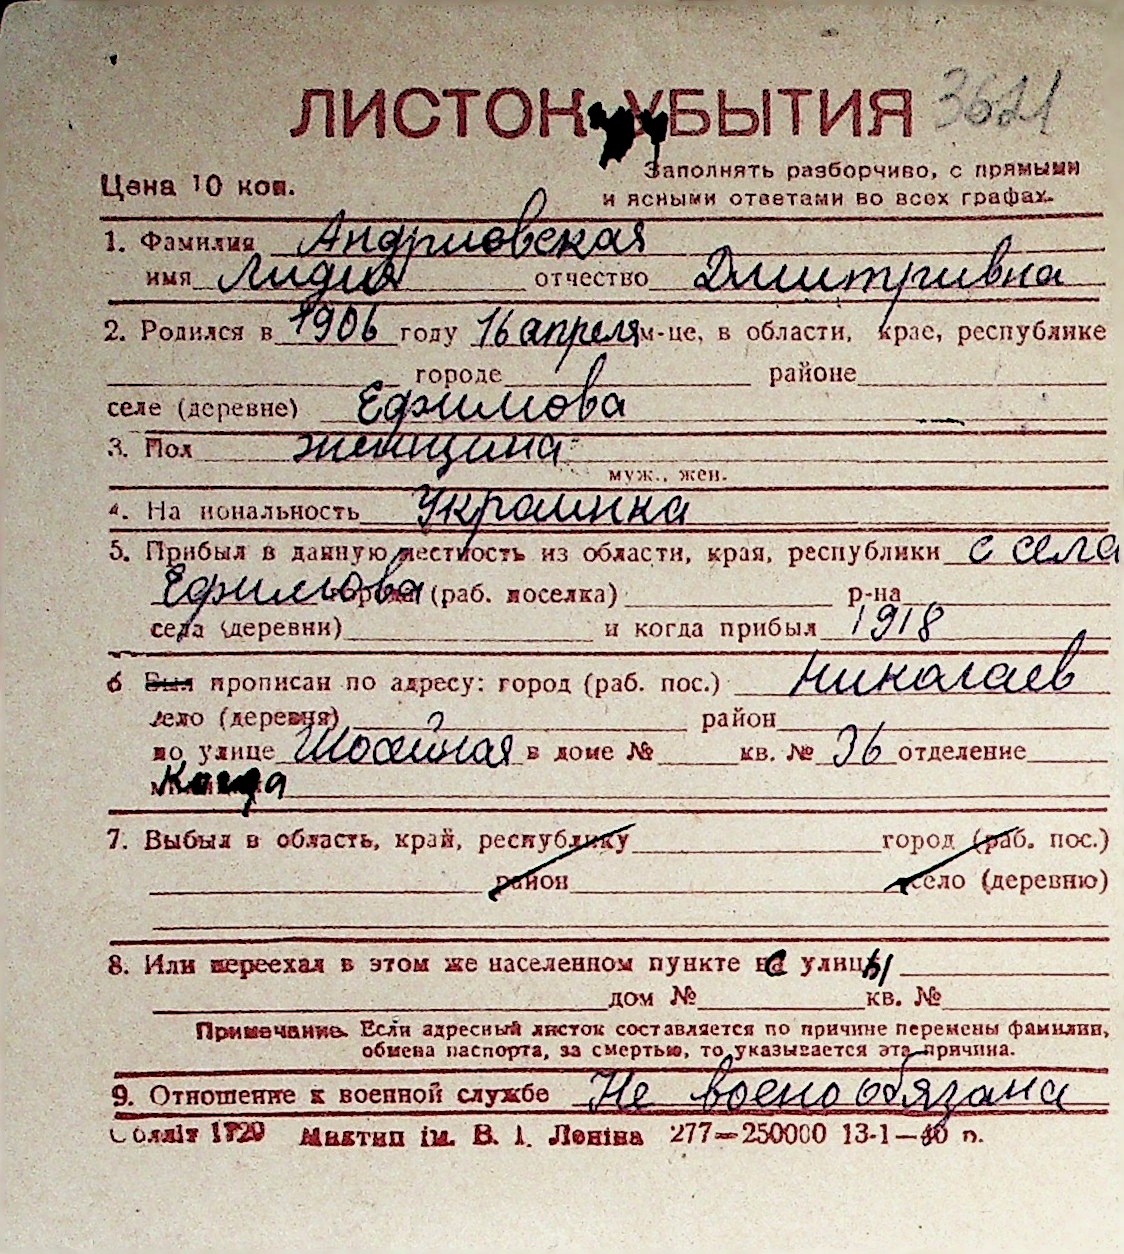 ЛИСТОК УБЫТИЯ 3621
Цена 10 коп.
Заполнять разборчиво, с прямыми
и ясными ответами во всех графах.
1. Фамилия Андриовская
имя Лидия отчество Дмитривна
2. Родился в 1906 году 16 апреля м-це, в области, крае, республике
городе районе
селе (деревне) Ефимова
3. Пол женщина
муж., жен.
4. На иональность Украинка
5. Прибыл в данную местность из области, края, республики с села
Ефимова города (раб. поселка) р-на
села (деревни) и когда прибыл 1918
6 Был прописан по адресу: город (раб. пос.) Николаев
село (деревня) район
по улице Шосейная в доме № кв. № 36 отделение
Когда
7. Выбыл в область, край, республику город (раб. пос.)
район село (деревню)
8. Или переехал в этом же населенном пункте с улицы
дом № кв. №
Примечание. Если адресный листок составляется по причине перемены фамилии,
обмена паспорта, за смертью, то указывается эта причина.
9. Отношение к военной службе Не воено обязана
Облліт 1720 Миктип ім. В. І. Леніна 277—250000 13-1—40 р.